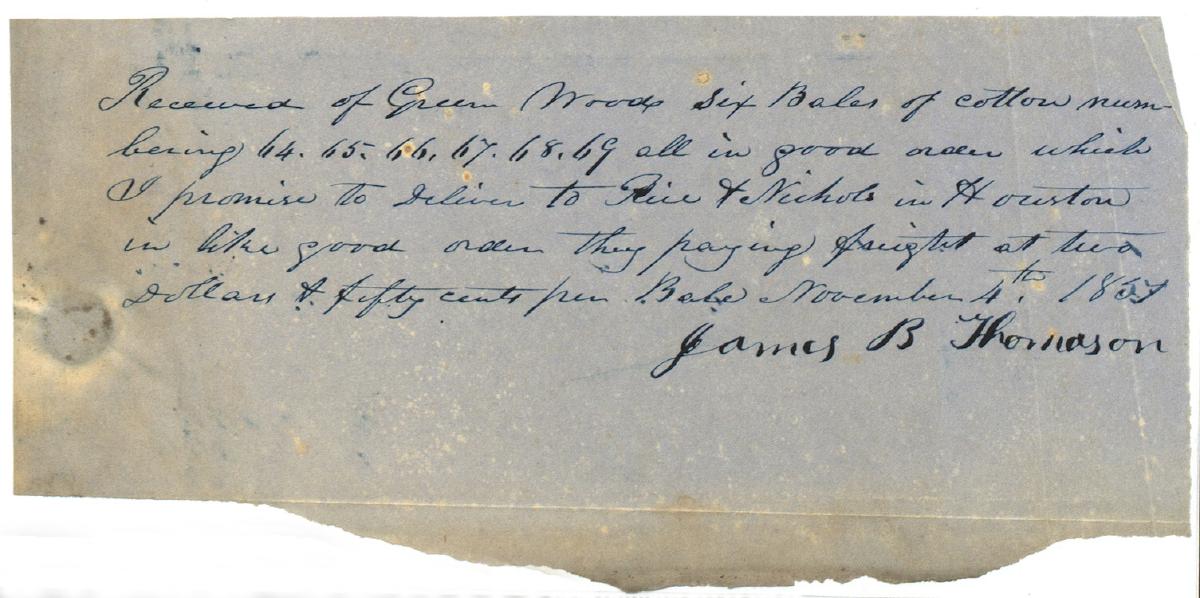 Received of Green Woods Six Bales of cotton num-
bering 64. 65. 66. 67. 68. 69 all in good order which
I promise to Deliver to Rice & Nichols in Houston
in like good order they paying freight at two
Dollars & fifty cents per Bale November 4th.
James B Thomason